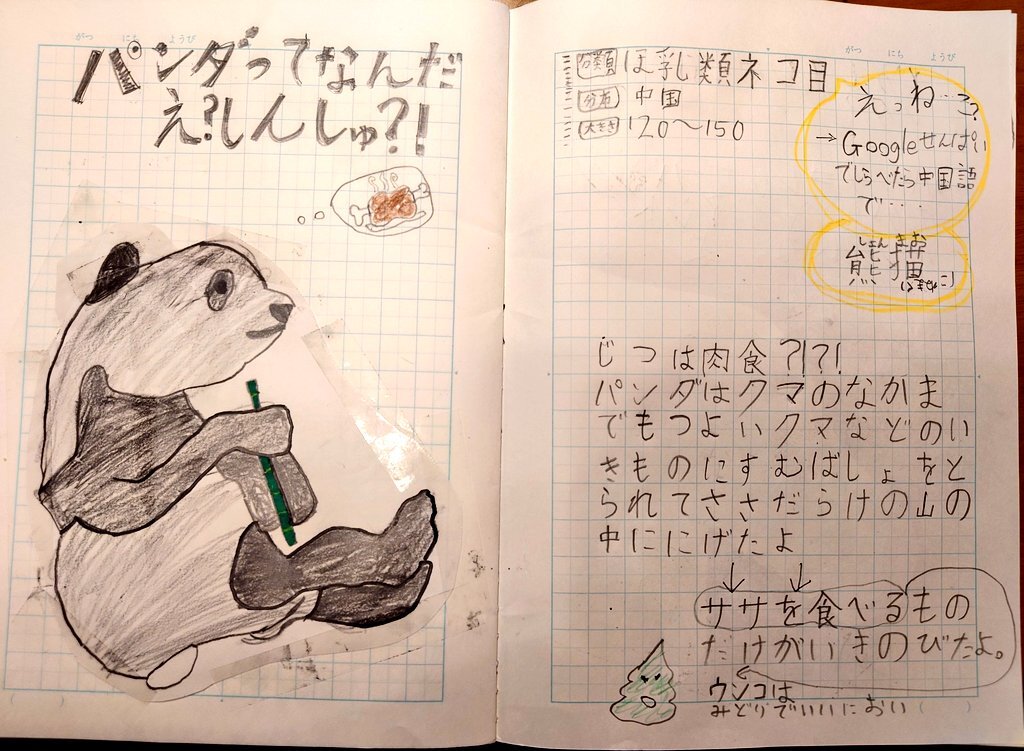 がつ にち ようび
パンダってなんだ
え?しんしゅ?!
がつ にち ようび
分類 ほ乳類ネコ目
分布 中国
大きさ 120〜150
えっねこ?
→Googleせんぱい
でしらべたら中国語
で・・・
熊猫
じつは肉食?!?!
パンダはクマのなかま
でもつよいクマなどのい
きものにすむばしょをと
られてささだらけの山の
中ににげたよ
ササを食べるもの
だけがいきのびたよ。
ウンコは
みどりでいいにおい